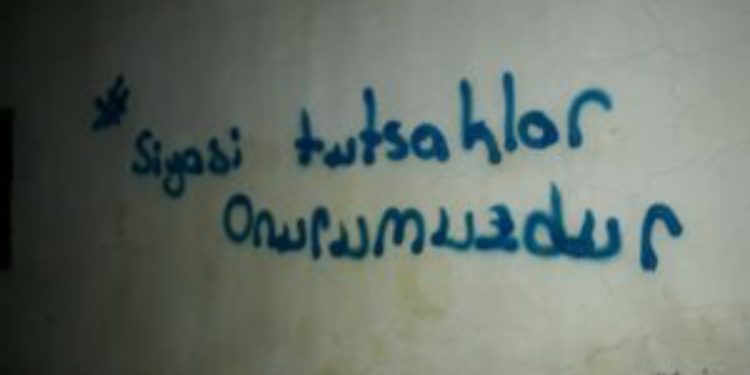 * Siyasi tutsaklar
Onurumuzdur